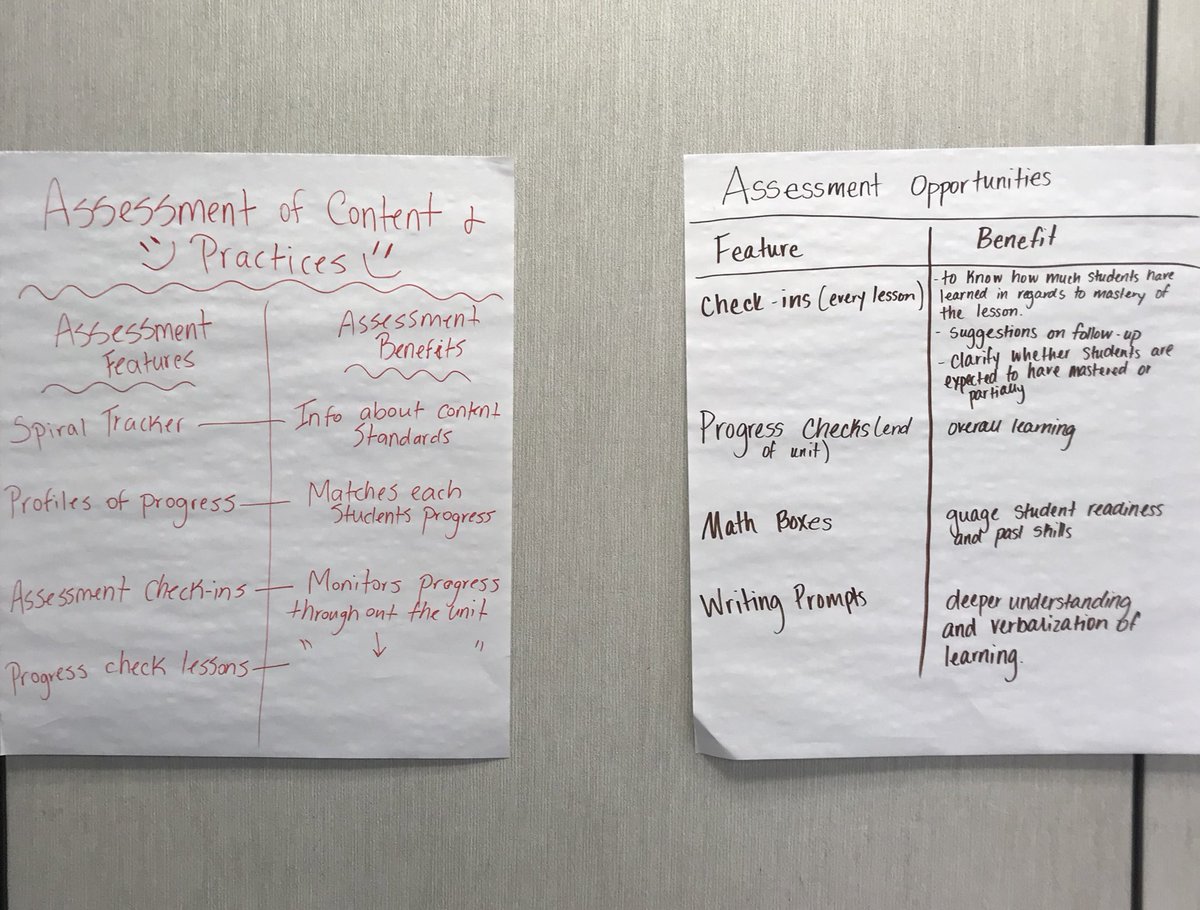 Assessment of Content &
Practices
Assessment
Features
Assessment
Benefits
Spiral Tracker
Info about content
Standards
Profiles of progress
Matches each
Students progress
Assessment Check-ins
Monitors progress
through out the unit
" ↓ "
Progress check lessons
Assessment Opportunities
Feature
Benefit
Check-ins (every lesson)
- to know how much students have
learned in regards to mastery of
the lesson.
- suggestions on follow-up
- clarify whether students are
expected to have mastered or
partially
Progress Checks (end
of unit)
overall learning
Math Boxes
guage student readiness
and past skills
Writing Prompts
deeper understanding
and verbalization of
learning.